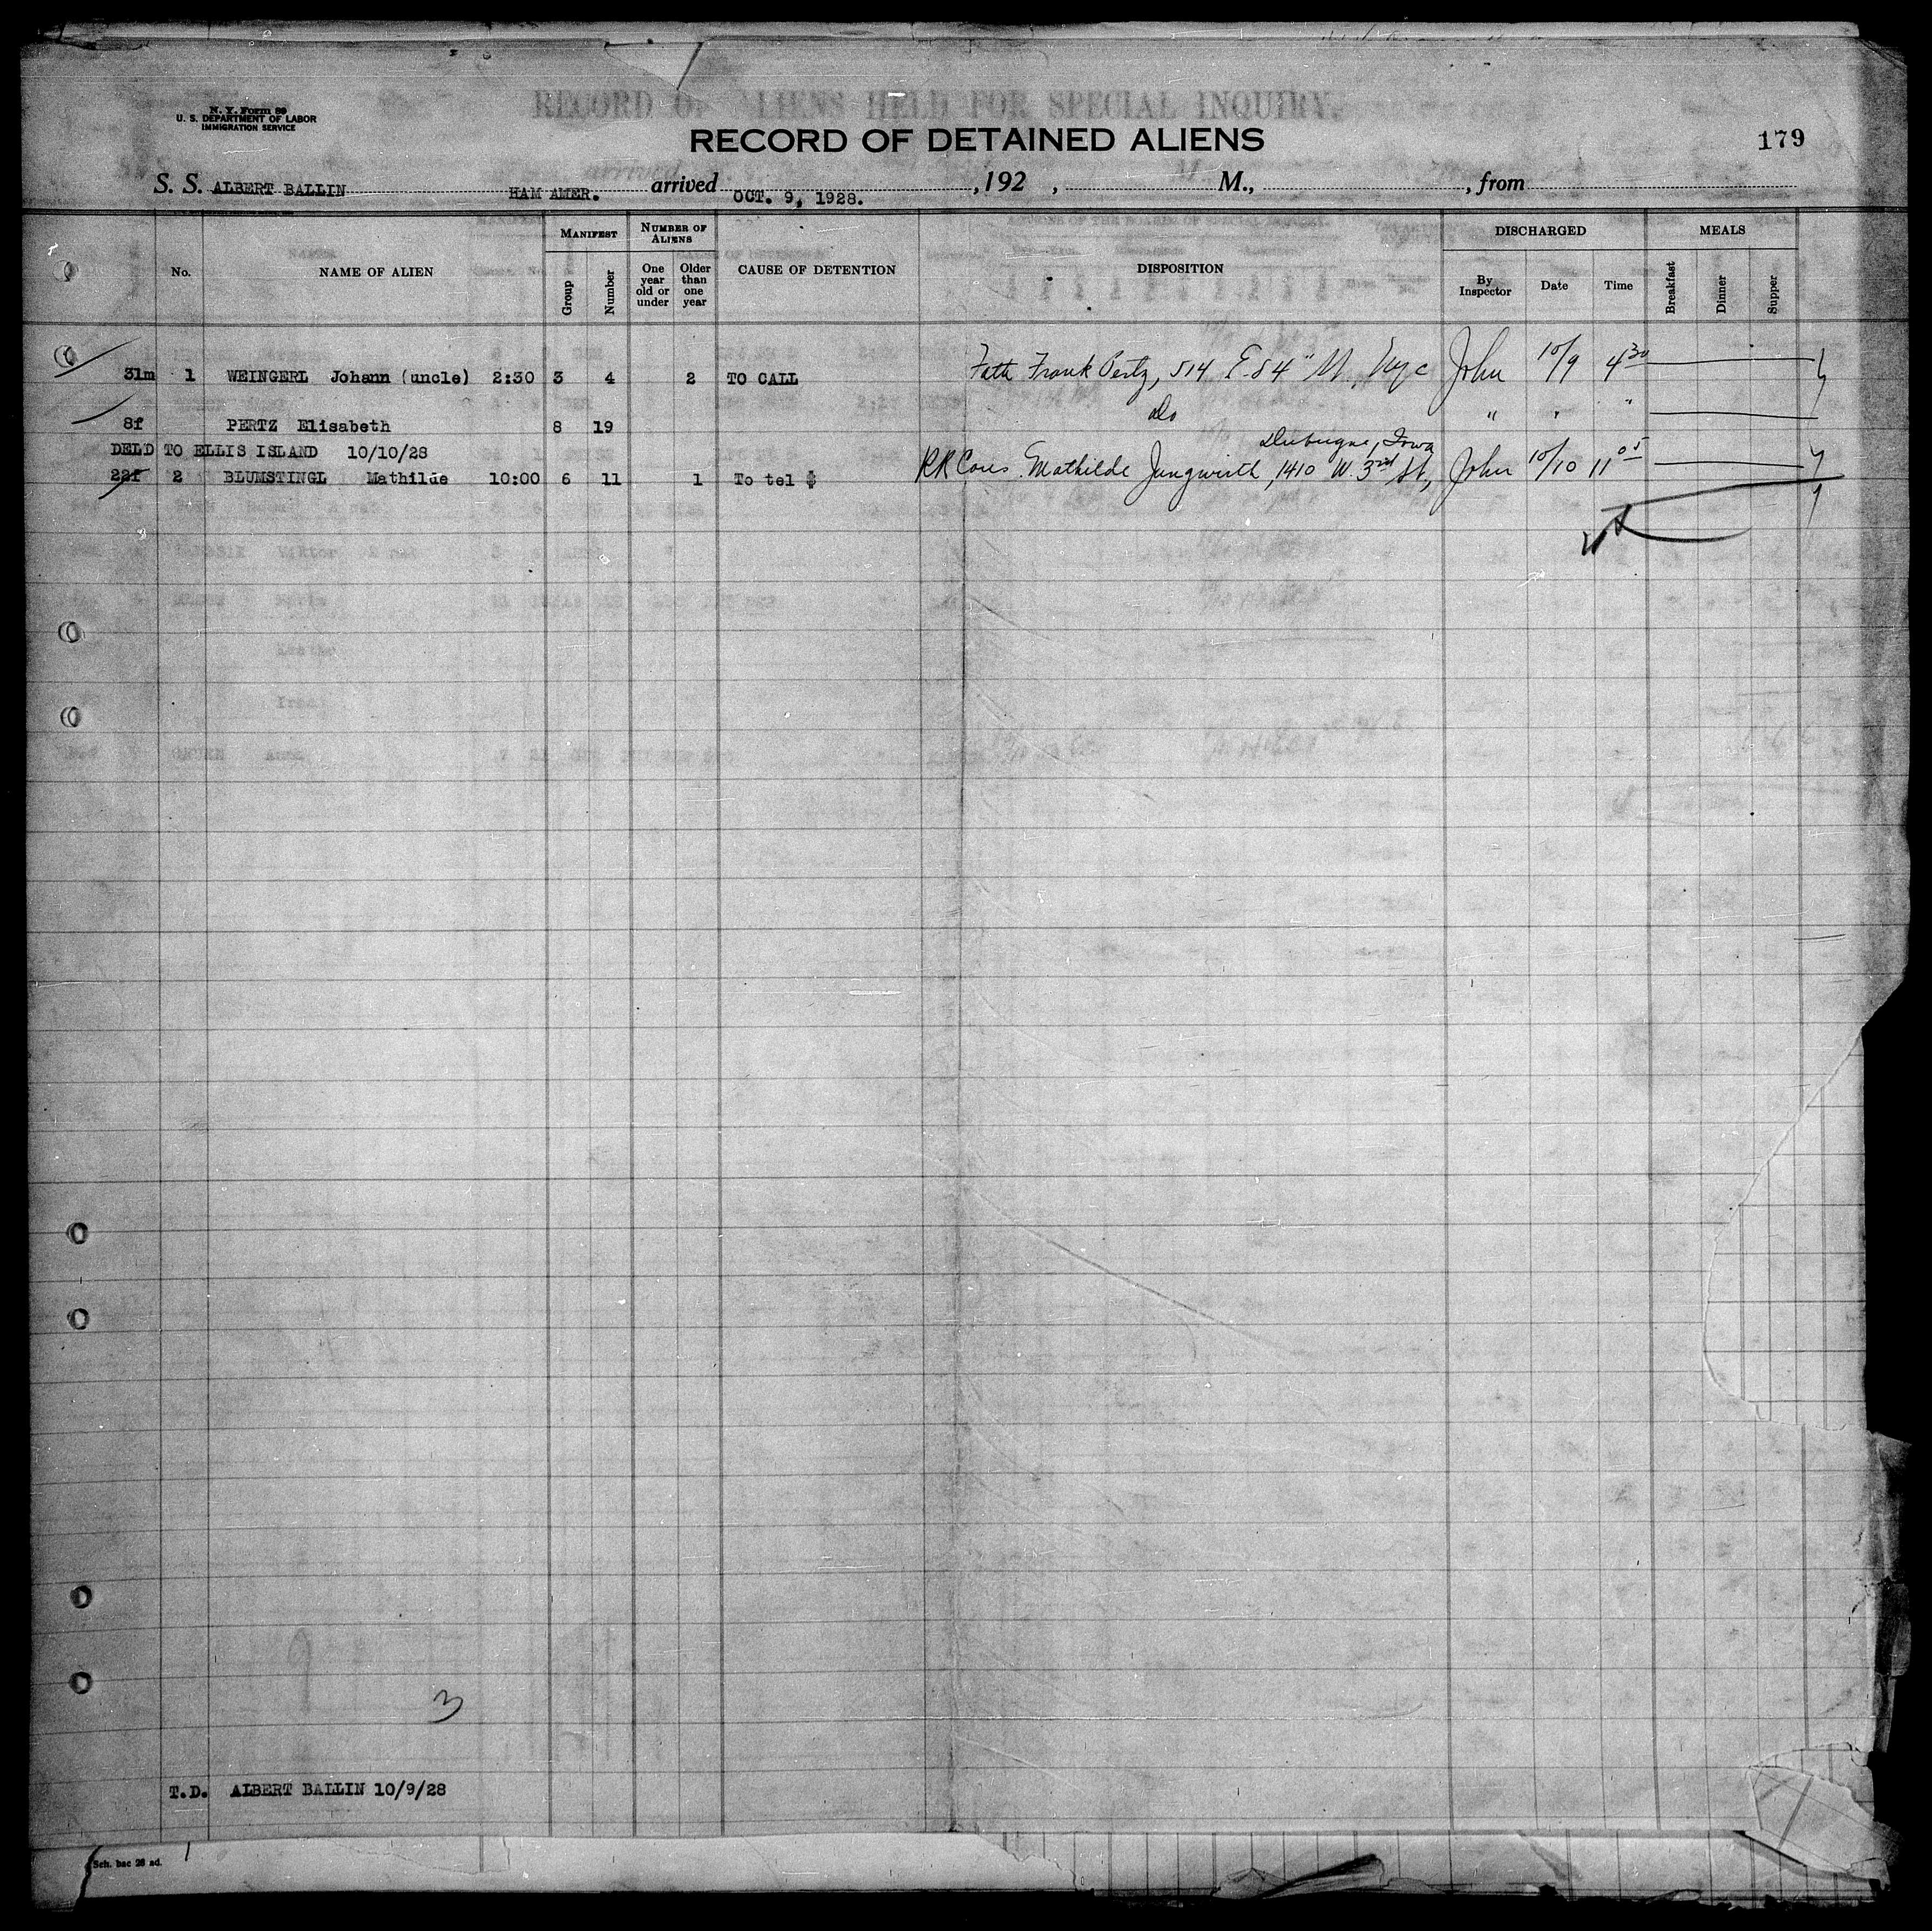 N. Y. Form 89
U. S. DEPARTMENT OF LABOR
IMMIGRATION SERVICE
RECORD OF ALIENS HELD FOR SPECIAL INQUIRY.
RECORD OF DETAINED ALIENS
179
S. S. ALBERT BALLIN HAM AMER. arrived OCT. 9, 1928. , 192 , M., , from
No. NAME OF ALIEN MANIFEST Group Number NUMBER OF ALIENS One year old or under Older than one year CAUSE OF DETENTION DISPOSITION DISCHARGED By Inspector Date Time MEALS Breakfast Dinner Supper
31m 1 WEINGERL Johann (uncle) 2:30 3 4 2 TO CALL Fath Frank Pertz, 514 E. 84" St, Nyc John 10/9 4 30
8f PERTZ Elisabeth 8 19 Do " " "
DEL'D TO ELLIS ISLAND 10/10/28
Dubuque, Iowa
22f 2 BLUMSTINGL Mathilde 10:00 6 11 1 To tel $ RR Cous Mathilde Jungwirth, 1410 W. 3rd St, John 10/10 11 05
3
T.D. ALBERT BALLIN 10/9/28
Sch. bac 28 ad.